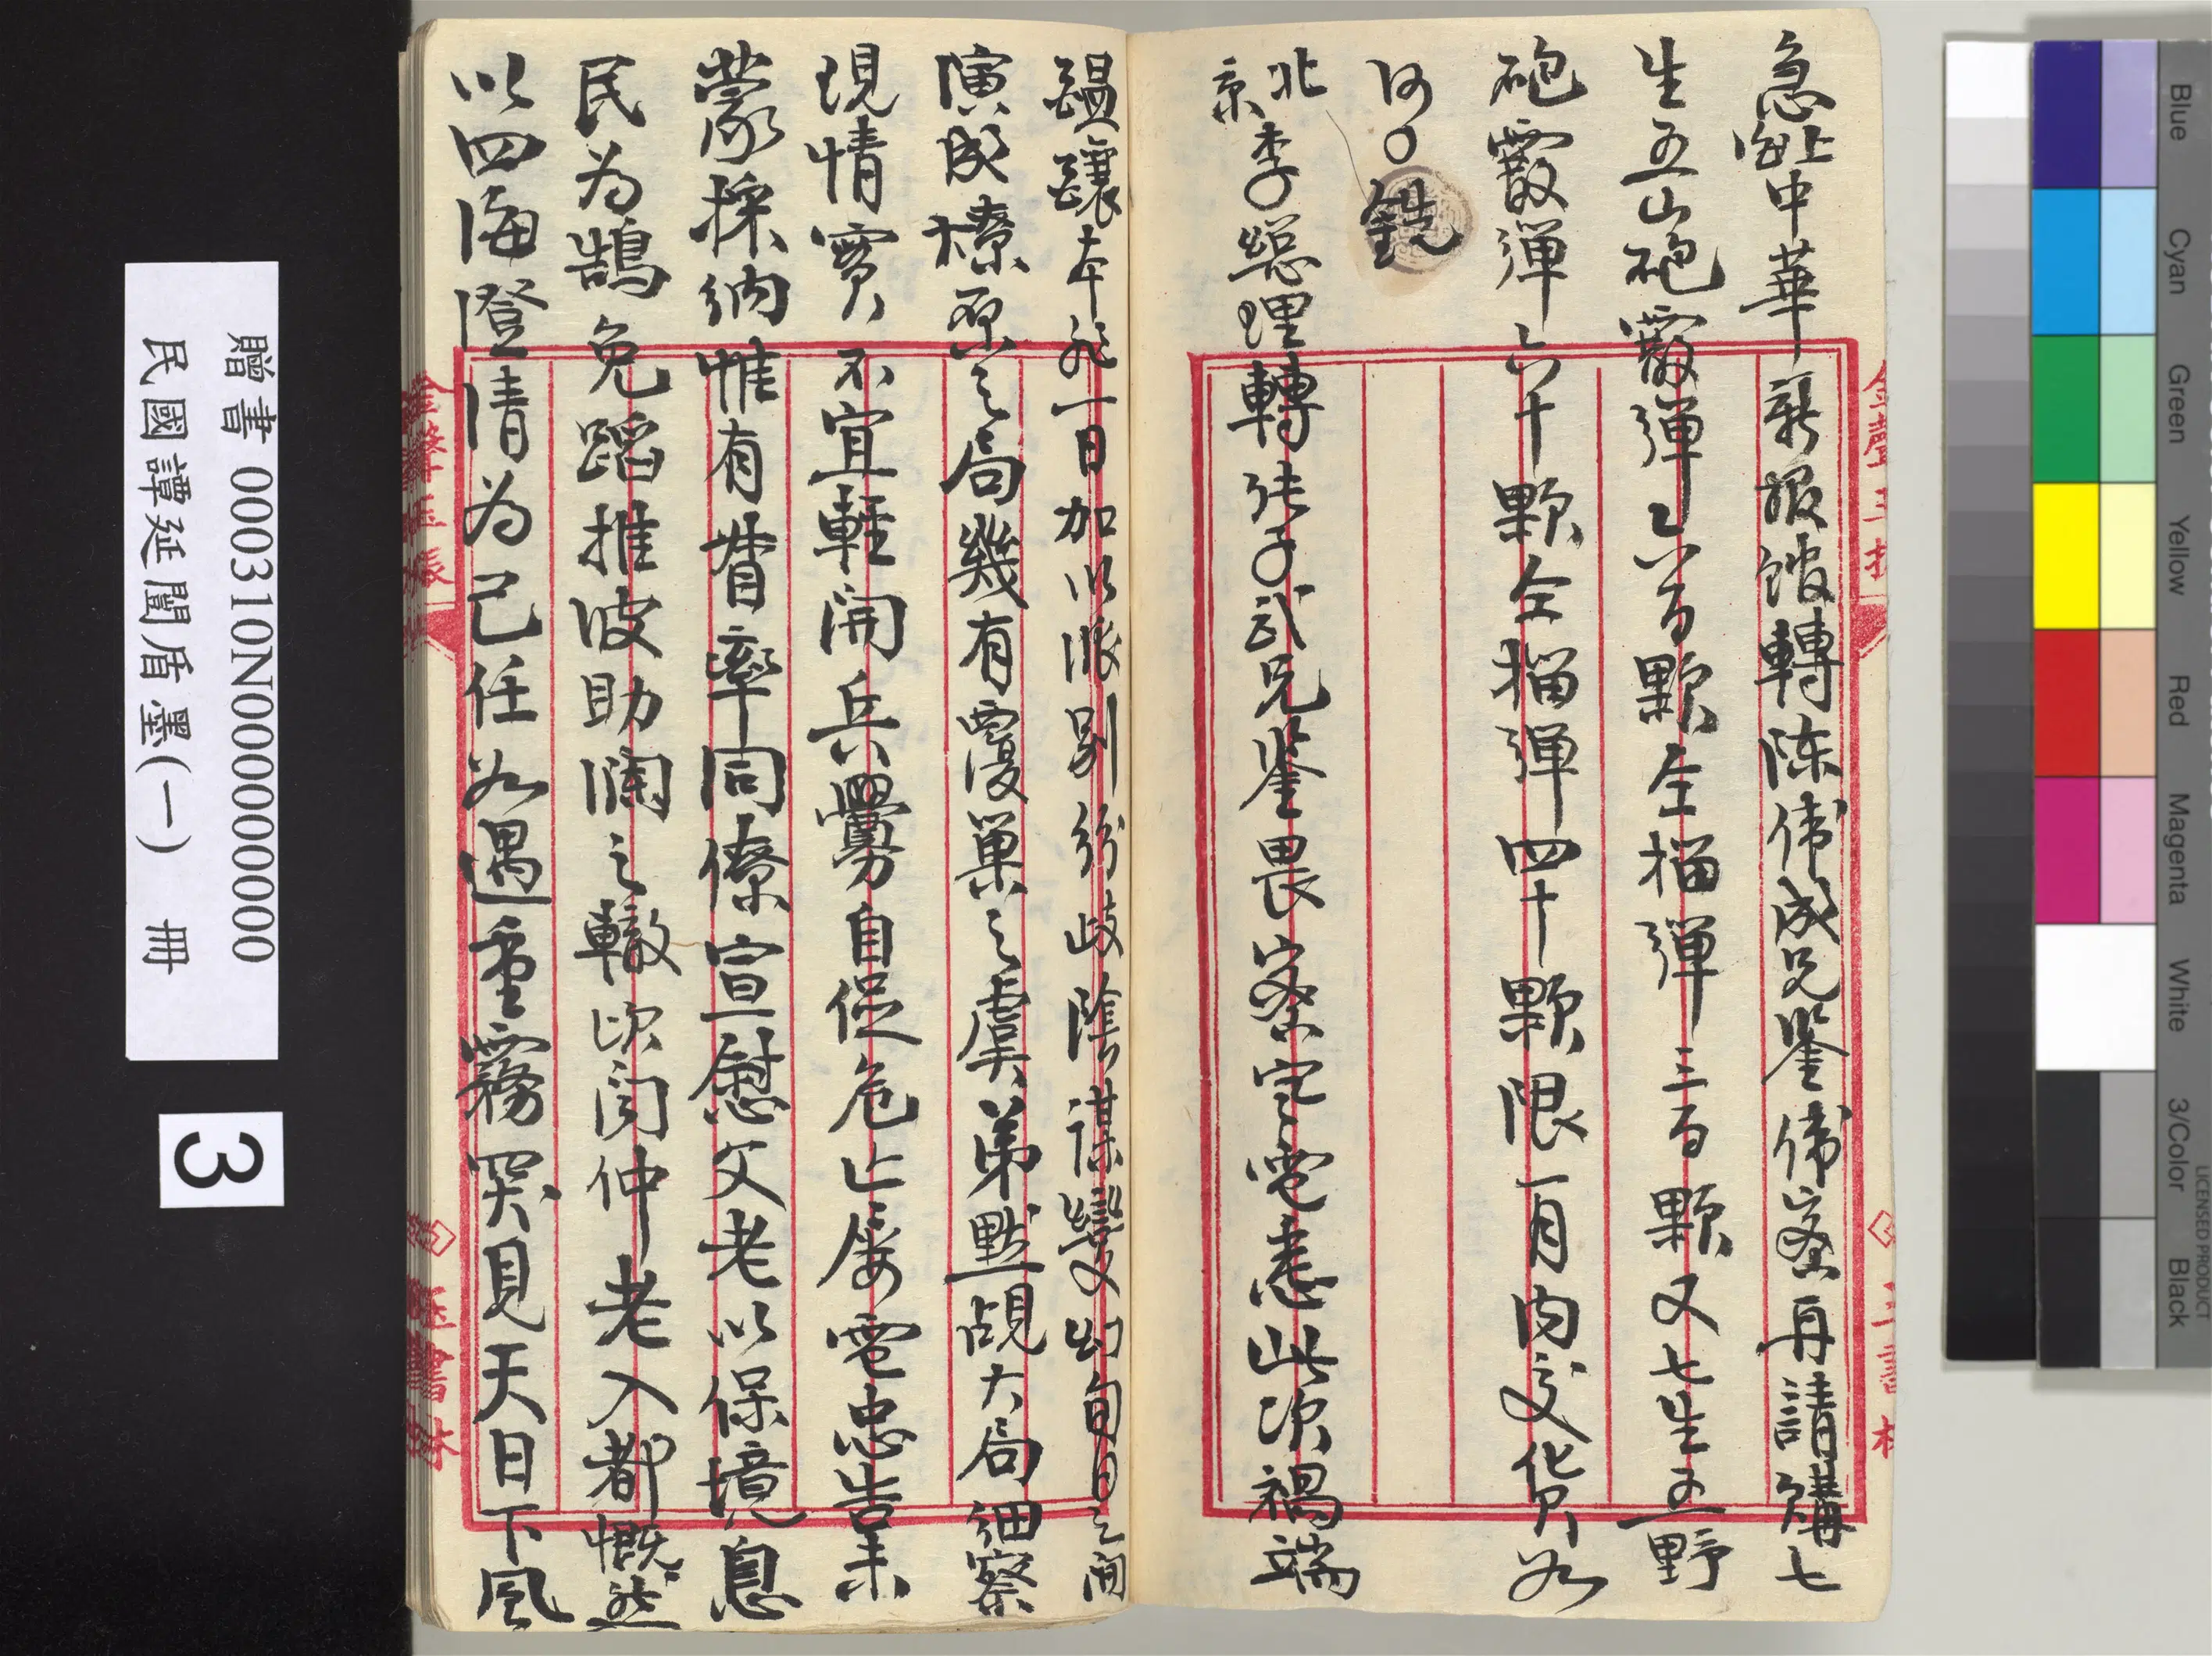 急上海中華新報館轉陳偉成兄鑒偉密再請購七
生五山砲霰彈乙六百顆仝榴彈三百顆又七生五野
砲霰彈六十顆仝榴彈四十顆限一月内交貨如
何〇銑
北京李總理轉張子武兄鑒畏密宅電悉此次禍端
醞釀本非一日加以派别紛歧陰謀變幻旬日之間
演成燎原之局幾有覆巢之虞弟默覘大局細察
現情實不宜輕開兵釁自促危亡屢電忠告未
蒙採納惟有督率同僚宣慰父老以保境息
民為鵠免蹈推波助瀾之轍昨閱仲老入都慨然
以四海澄清為己任如遇重霧突見天日下風
贈書 000310N000000000000
民國譚延闓盾墨(一) 冊
3
Blue
Cyan
Green
Yellow
Red
Magenta
White
3/Color
Black
LICENSED PRODUCT